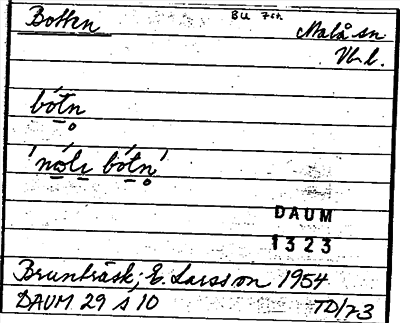 Botten BU 7ch. Malå sn
Vb. l.
bótn̥
'nóli bótn̥'
DAUM
1323
Brunträsk; E. Larsson 1954
DAUM 29 s 10 TD/73